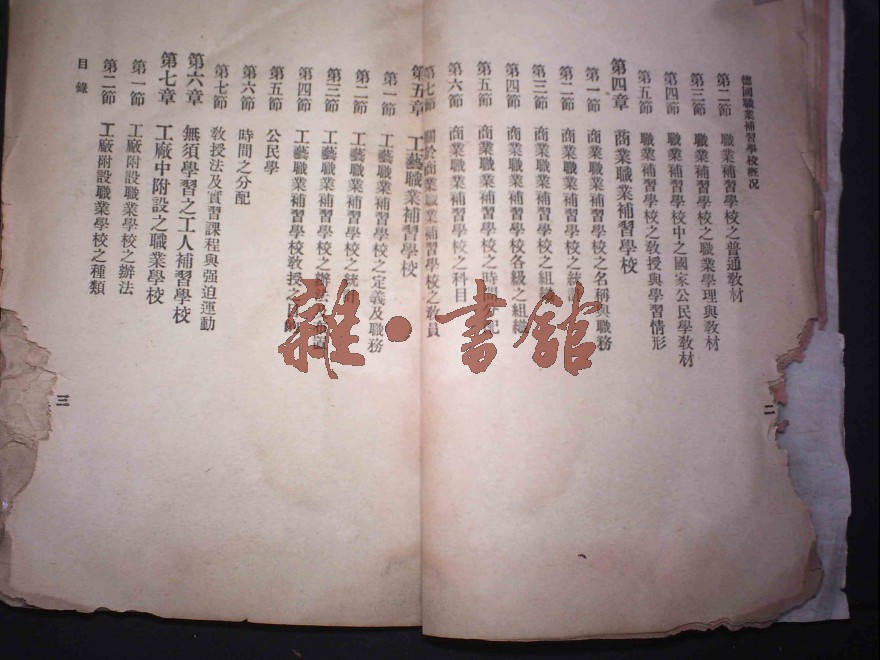 德國職業補習學校槪况
第二節 職業補習學校之普通敎材
第三節 職業補習學校之職業學理與敎材
第四節 職業補習學校中之國家公民學敎材
第五節 職業補習學校之敎授與學習情形
第四章 商業職業補習學校
第一節 商業職業補習學校之名稱與職務
第二節 商業職業補習學校之統計
第三節 商業職業補習學校之組織
第四節 商業職業補習學校各級之組織
第五節 商業職業補習學校之時間分配
第六節 商業職業補習學校之科目
第七節 關於商業職業補習學校之敎員
二
第五章 工藝職業補習學校
第一節 工藝職業補習學校之定義及職務
第二節 工藝職業補習學校之統計
第三節 工藝職業補習學校之辦法
第四節 工藝職業補習學校敎授之
第五節 公民學
第六節 時間之分配
第七節 敎授法及實習課程與强迫運動
第六章 無須學習之工人補習學校
第七章 工廠中附設之職業學校
第一節 工廠附設職業學校之辦法
第二節 工廠附設職業學校之種類
目錄
三
雜·書館